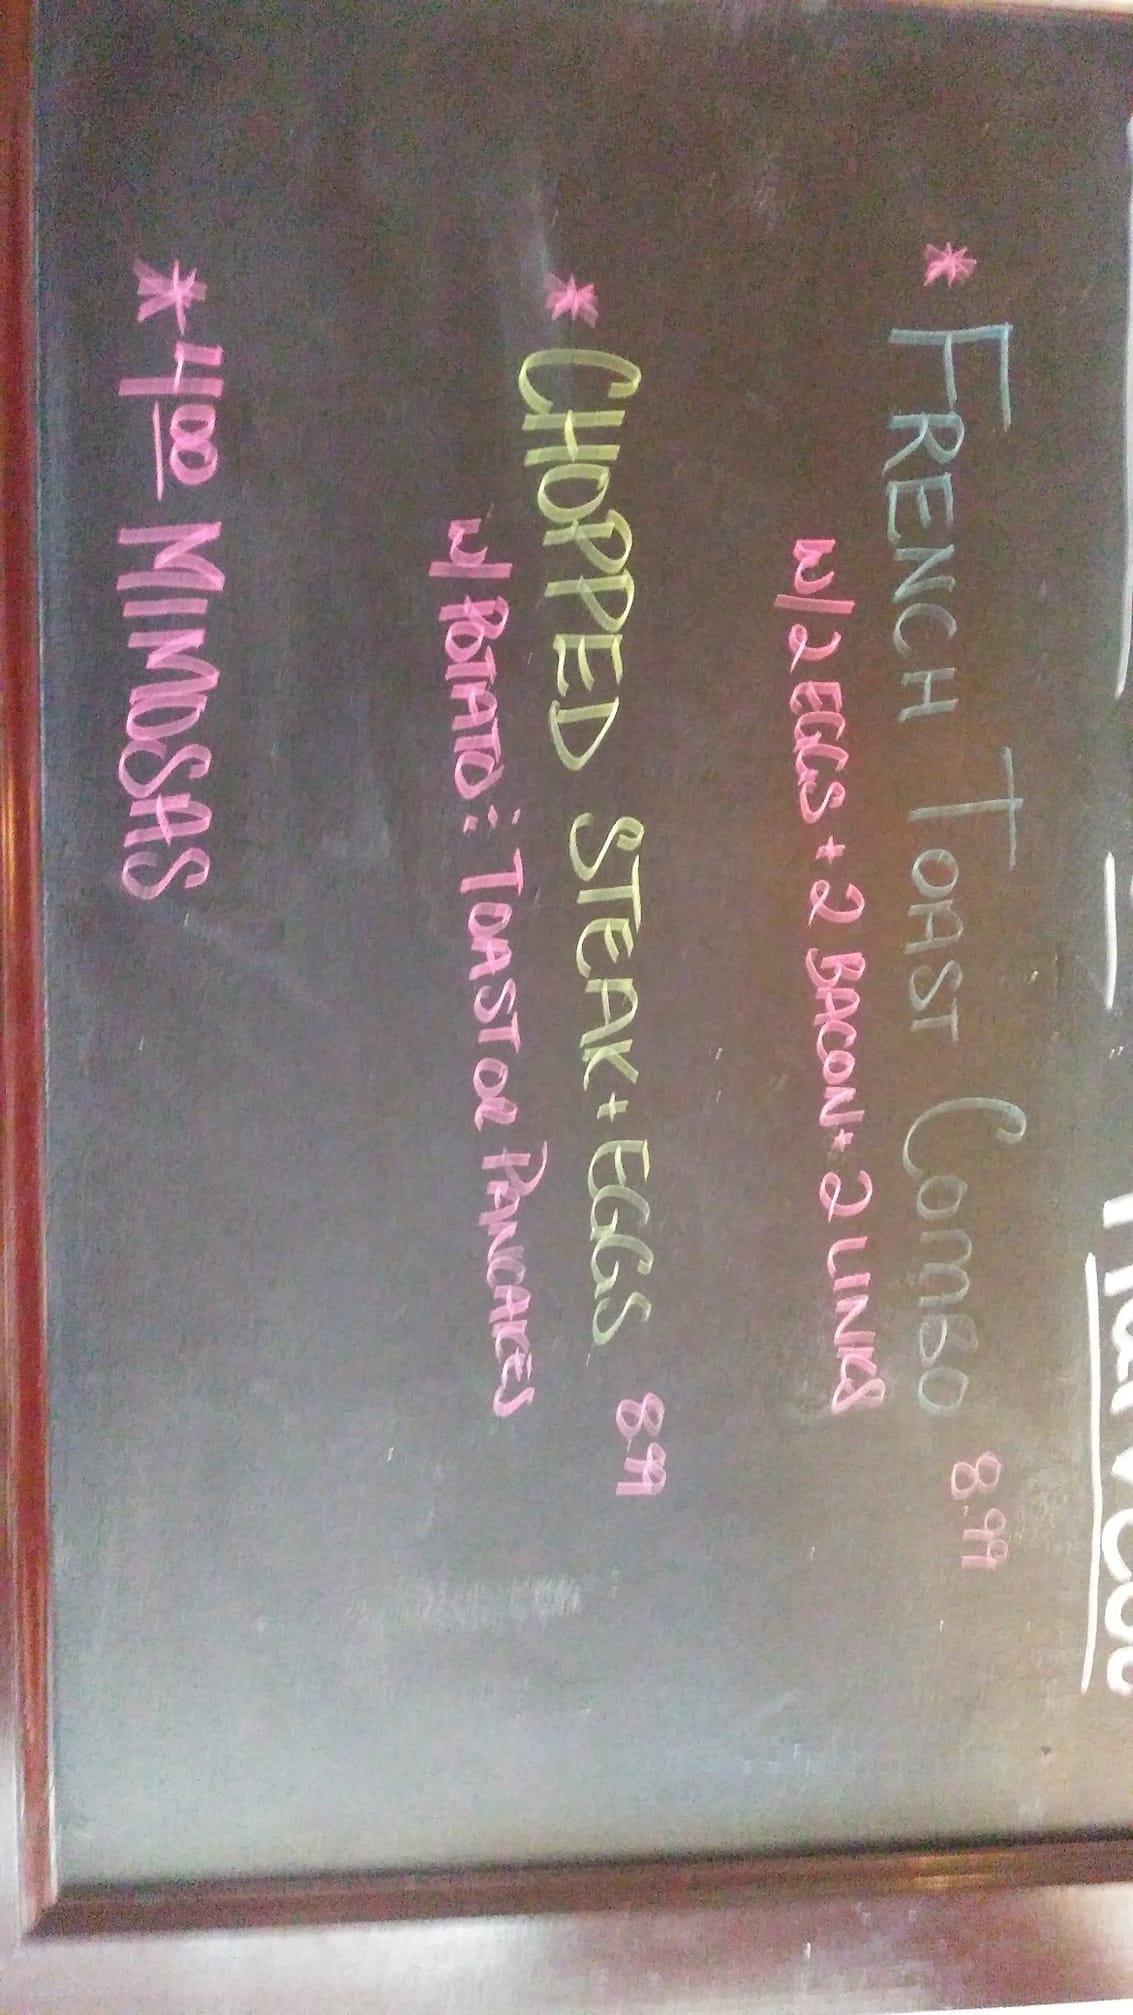 * FRENCH TOAST COMBO 8.99
w/ 2 EGGS + 2 BACON + 2 LINKS
* CHOPPED STEAK + EGGS 8.99
w/ POTATO : TOAST OR PANCAKES
* 4.00 MIMOSAS